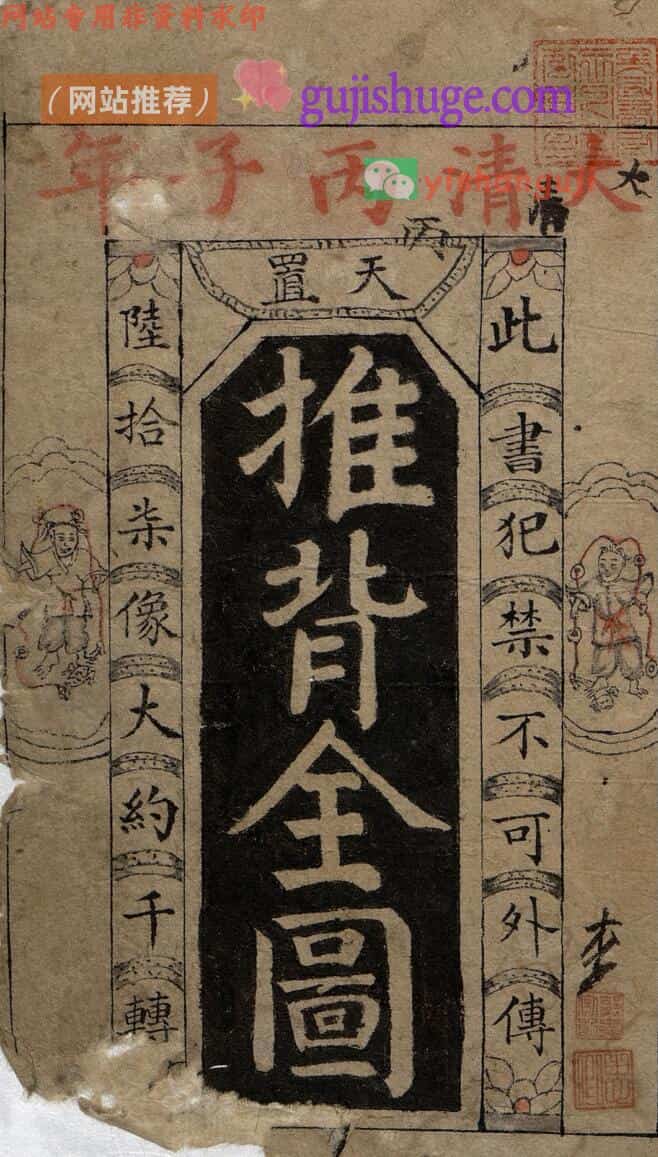 网站专用非资料水印
（网站推荐）
gujishuge.com
大清丙子年
大
清
丙
天置
此書犯禁不可外傳
推背全圖
陸拾柒像大約千轉
李